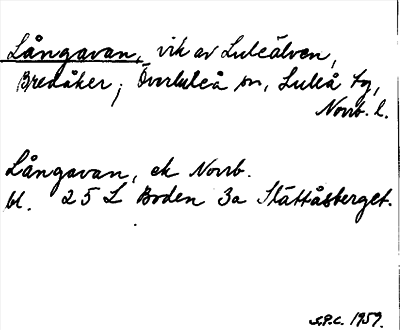 Långavan, vik av Luleälven,
Bredåker, Överluleå sn, Luleå tg,
Norrb. l.
Långavan, ek Norrb.
bl. 25 L Boden 3a Slättåsberget.
S.P.C. 1959.